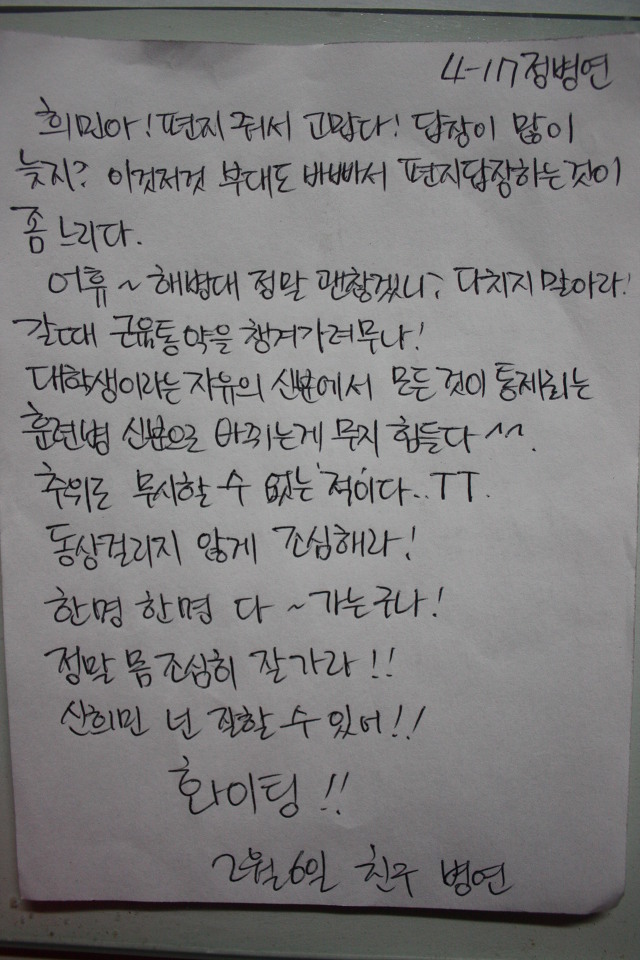 4-17 정병연
희민아! 편지 줘서 고맙다! 답장이 많이
늦지? 이것저것 부대도 바빠서 편지답장하는것이
좀 느리다.
어휴~ 해병대 정말 괜찮겠니? 다치지 말아라!
갈때 근육통약을 챙겨가려무나!
대학생이라는 자유의 신분에서 모든것이 통제되는
훈련병 신분으로 바뀌는게 무지 힘들다^^.
추위도 무시할 수 없는 '적'이다..TT.
동상걸리지 않게 조심해라!
한명 한명 다~가는구나!
정말 몸 조심히 잘가라!!
신희민 넌 잘할 수 있어!!
화이팅!!
2월6일 친구 병연